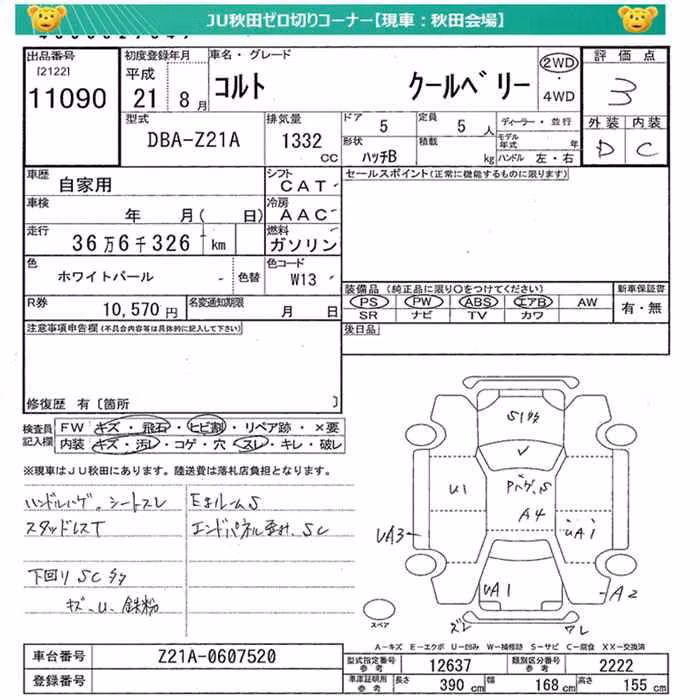 JU秋田ゼロ切りコーナー【現車：秋田会場】
出品番号
[2122]
11090
初度登録年月
平成
21 8月
車名・グレード
コルト クールベリー
2WD
・
4WD
評価点
3
外装 内装
D C
型式
DBA-Z21A
排気量
1332
cc
ドア
5
定員
5人
ディーラー・並行
モデル年式 年
形状
ハッチB
積載
kg
ハンドル 左・右
車歴
自家用
シフト
CAT
セールスポイント(正常に機能するものに限ります)
車検
年 月( 日)
冷房
AAC
走行
36万6千326 km
燃料
ガソリン
色
ホワイトパール
色替
色コード
W13
装備品(純正品に限り○をつけてください)
PS PW ABS エアB AW
SR ナビ TV カワ
新車保証書
有・無
R券
10,570円
名変通知期限
月 日
後日品
注意事項申告欄(不具合内容等は具体的に記入して下さい)
修復歴 有〔箇所 〕
検査員
記入欄
FW キズ・飛石・ヒビ割・リペア跡・×要
内装 キズ・汚レ・コゲ・穴・スレ・キレ・破レ
※現車はJU秋田にあります。陸送費は落札店負担となります。
ハンドルハゲ、シートスレ
スタッドレスT
下回りSC多
キズ、U、鉄粉
EルームS
エンドパネル歪み、SC
S1多
U1
A4
UA3
UA1
UA1
A2
ズレ
ワレ
スペア
A―キズ E―エクボ U―凹み W―補修跡 S―サビ C―腐食 XX―交換済
車台番号
Z21A-0607520
登録番号
型式指定番号
参考
12637
類別区分番号
参考
2222
車庫証明用
参考
長さ
390 cm
幅
168 cm
高さ
155 cm